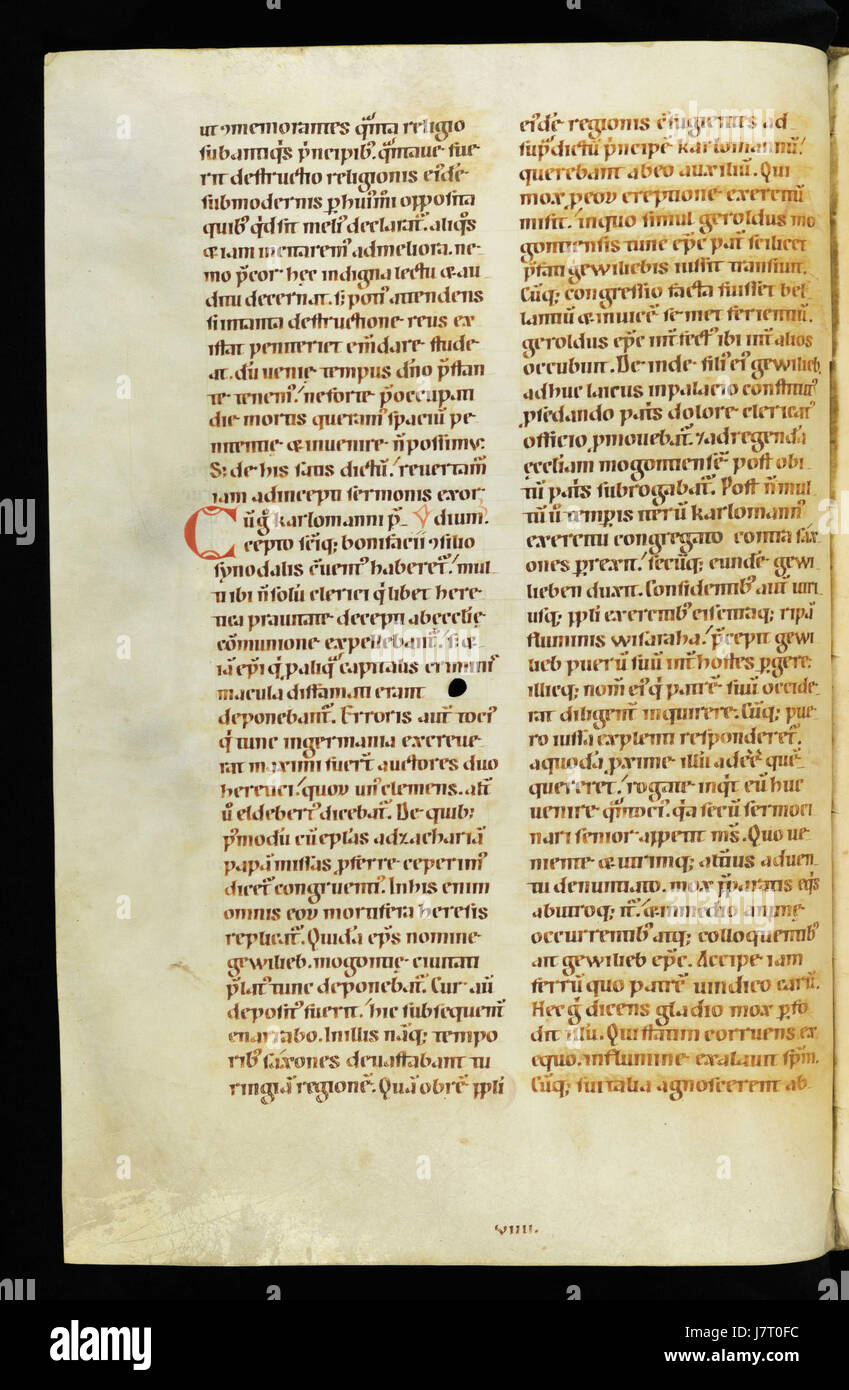 ut ꝯmemorantes q̄nta religio
sub antiq̄s p̄ncipib᷒. q̄ntaue fue
rit destructio religionis eidē
sub modernis
quib᷒ q̄d sit meli᷒ declarat̄. aliq̄s
& iam
mo p̄cor hęc indigna lectu & au
ditu decernat. si poti᷒ attendens
si in tanta destructione reus ex
istat peniteri et em̄dare stude
at. dū uenię tempus dn̄o p̄stan
te tenem᷒. ne forte p̄occupati
die mortis queram᷒ spaciū pe
nitentię & inuenire n̄ possim᷒.
S; de his satis dictū. reuertam̄
iam ad incepti sermonis exor
dium.
Cū g̊ karlomanni p̄
cepto sc̄iq; bonifacii ꝯsilio
synodalis ꝯuent᷒ haberet̄. mul
ti ibi n̄ solū clerici q̄libet here
tica prauitate decepti ab ęcclię
cōmunione expellebant̄. s; &
iā ep̄i q̄ p aliq̄ capitalis criminis
macula diffamati erant
deponebant̄. Erroris aut̄ toci᷒
q̄ tunc in germania excreue
rat maximi fuer̄t auctores duo
heretici. quoꝝ un᷒ clemens. alt̄
ū eldebert᷒ dicebat̄. De quib;
p̄modū cū epl̄as ad zachariā
papā missas pferre ceperim᷒
dicet̄ congruenti᷒. In his enim
omnis eoꝝ mortifera heresis
replicat̄. Quidā ep̄s nomine
gewilieb. mogontię ciuitati
p̄lat᷒ tunc deponebat̄. Cur aū
deposit᷒ fuerit. hic subsequent̄
enarrabo. In illis nāq; tempo
rib᷒ saxones deuastabant tu
ringiā regionē. Quā ob rē ipsi
eidē regionis ꝯfugientes ad
sup̄dictū p̄ncipē karlomannū.
querebant ab eo auxiliū. Qui
mox p eoꝝ ereptione exercitū
misit. in quo simul geroldus mo
gontiensis tunc ep̄c pat̄ scilicet
p̄fati gewiliebis iussit transiuit.
Cūq; congressio facta fuisset bel
lantiū & inuicē semet ferientiū.
geroldus ep̄c int̄fect᷒ ibi int̄ alios
occubuit. Deinde fili᷒ ei᷒ gewilieb
adhuc laicus in palacio constitut᷒
p sedando pat̄s dolore clericat᷒
officio pmouebat̄. & ad regendā
ęccl̄iam mogontiensē post obi
tū pat̄s subrogabat̄. Post n̄ mul
tū ū tempis iterū karlomann᷒
exercitu congregato contra sax
ones prexit. secūq; eundē gewi
lieben duxit. Considentib᷒ aut̄ utri
usq; ipsi exercitib᷒ ei᷒dēq; ripā
fluminis wisaraha. p̄cepit gewi
lieb puerū suū int̄ hostes pgere.
illicq; nom̄ ei᷒ q̄ patrē suū occide
rat diligent̄ inquirere. Cūq; pue
ro iussa explenti responderet̄.
a quodā pxime illū adeē quē
quereret. rogate inq̄t eū huc
uenire q̄ntoci᷒. q̄a secū sermoci
nari senior appetit m̄s. Quo ue
niente & utrimq; alt̄ius aduen
tu denuntiato. mox p̄paratis eq̄s
ab utroq; it̄. & in medio amne
occurrentib᷒ atq; colloquentib᷒
ait gewilieb ep̄c. Accipe iam
ferrū quo patrē uindico carū.
Hęc g̊ dicens gladio mox pfo
dit illū. Qui statim corruens ex
equo. in flumine exalauit sp̄m.
Cūq; sui talia agnoscerent ab
VIIII.
alamy
Image ID: J7T0FC
www.alamy.com